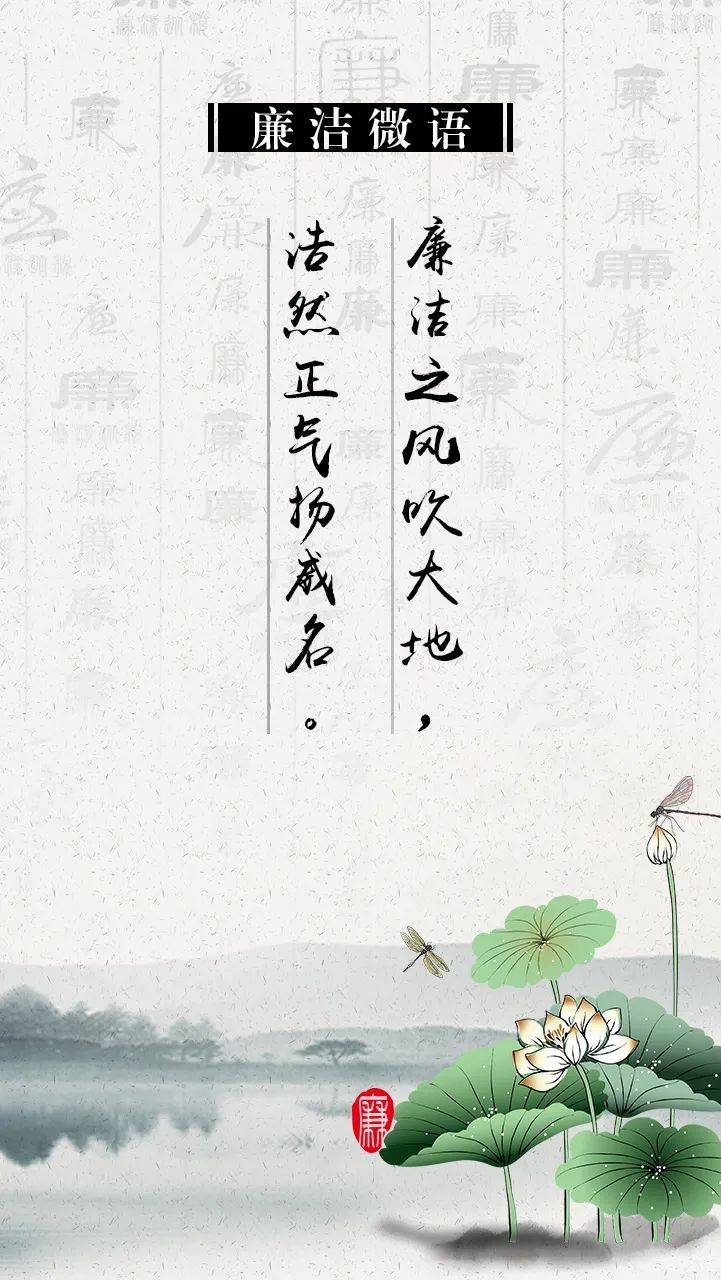 廉洁微语
廉洁之风吹大地，
浩然正气扬威名。
廉